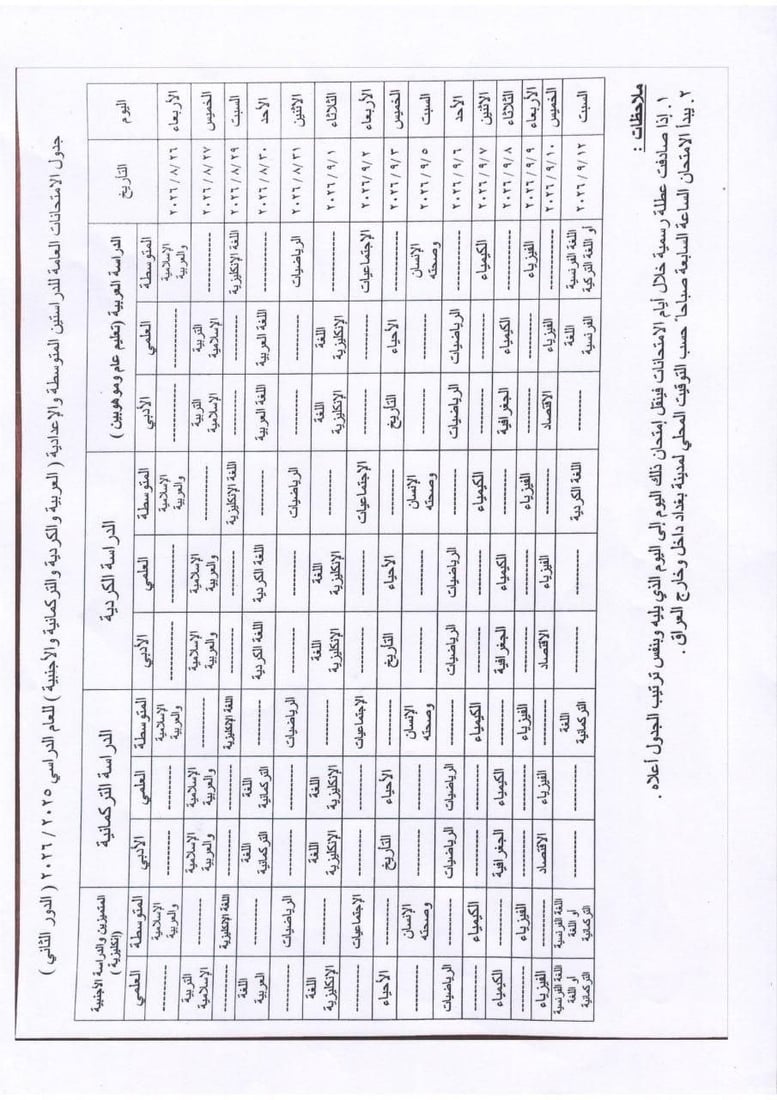 جدول الامتحانات العامة للدراستين المتوسطة والإعدادية ( العربية والكردية والتركمانية والأجنبية ) للعام الدراسي ٢٠٢٥ / ٢٠٢٦ ( الدور الثاني )
اليوم التأريخ الدراسة العربية (تعليم عام وموهوبين) الدراسة الكردية الدراسة التركمانية المتميزين والدراسة الأجنبية (إنكليزية)
المتوسطة العلمي الأدبي المتوسطة العلمي الأدبي المتوسطة العلمي الأدبي المتوسطة العلمي
الأربعاء ٢٠٢٦ / ٨ / ٢٦ الإسلامية والعربية ---------- ---------- الإسلامية والعربية ---------- ---------- الإسلامية والعربية ---------- ---------- الإسلامية والعربية ----------
الخميس ٢٠٢٦ / ٨ / ٢٧ ---------- التربية الإسلامية التربية الإسلامية ---------- الإسلامية والعربية الإسلامية والعربية ---------- الإسلامية والعربية الإسلامية والعربية ---------- التربية الإسلامية
السبت ٢٠٢٦ / ٨ / ٢٩ اللغة الإنكليزية ---------- ---------- اللغة الإنكليزية ---------- ---------- اللغة الإنكليزية ---------- ---------- اللغة الإنكليزية ----------
الأحد ٢٠٢٦ / ٨ / ٣٠ ---------- اللغة العربية اللغة العربية ---------- اللغة الكردية اللغة الكردية ---------- اللغة التركمانية اللغة التركمانية ---------- اللغة العربية
الاثنين ٢٠٢٦ / ٨ / ٣١ الرياضيات ---------- ---------- الرياضيات ---------- ---------- الرياضيات ---------- ---------- الرياضيات ----------
الثلاثاء ٢٠٢٦ / ٩ / ١ ---------- اللغة الإنكليزية اللغة الإنكليزية ---------- اللغة الإنكليزية اللغة الإنكليزية ---------- اللغة الإنكليزية اللغة الإنكليزية ---------- اللغة الإنكليزية
الأربعاء ٢٠٢٦ / ٩ / ٢ الإجتماعيات ---------- ---------- الإجتماعيات ---------- ---------- الإجتماعيات ---------- ---------- الإجتماعيات ----------
الخميس ٢٠٢٦ / ٩ / ٣ ---------- الأحياء التأريخ ---------- الأحياء التأريخ ---------- الأحياء التأريخ ---------- الأحياء
السبت ٢٠٢٦ / ٩ / ٥ الإنسان وصحته ---------- ---------- الإنسان وصحته ---------- ---------- الإنسان وصحته ---------- ---------- الإنسان وصحته ----------
الأحد ٢٠٢٦ / ٩ / ٦ ---------- الرياضيات الرياضيات ---------- الرياضيات الرياضيات ---------- الرياضيات الرياضيات ---------- الرياضيات
الاثنين ٢٠٢٦ / ٩ / ٧ الكيمياء ---------- ---------- الكيمياء ---------- ---------- الكيمياء ---------- ---------- الكيمياء ----------
الثلاثاء ٢٠٢٦ / ٩ / ٨ ---------- الكيمياء الجغرافية ---------- الكيمياء الجغرافية ---------- الكيمياء الجغرافية ---------- الكيمياء
الأربعاء ٢٠٢٦ / ٩ / ٩ الفيزياء ---------- ---------- الفيزياء ---------- ---------- الفيزياء ---------- ---------- الفيزياء ----------
الخميس ٢٠٢٦ / ٩ / ١٠ ---------- الفيزياء الاقتصاد ---------- الفيزياء الاقتصاد ---------- الفيزياء الاقتصاد ---------- الفيزياء
السبت ٢٠٢٦ / ٩ / ١٢ اللغة الفرنسية أو اللغة التركية اللغة الفرنسية ---------- اللغة الكردية ---------- ---------- اللغة التركمانية ---------- ---------- اللغة الفرنسية أو اللغة التركمانية اللغة الفرنسية أو اللغة التركمانية
ملاحظات :
١. إذا صادفت عطلة رسمية خلال أيام الامتحانات فينقل إمتحان ذلك اليوم إلى اليوم الذي يليه وبنفس ترتيب الجدول أعلاه .
٢. يبدأ الامتحان الساعة السابعة صباحاً حسب التوقيت المحلي لمدينة بغداد داخل وخارج العراق .